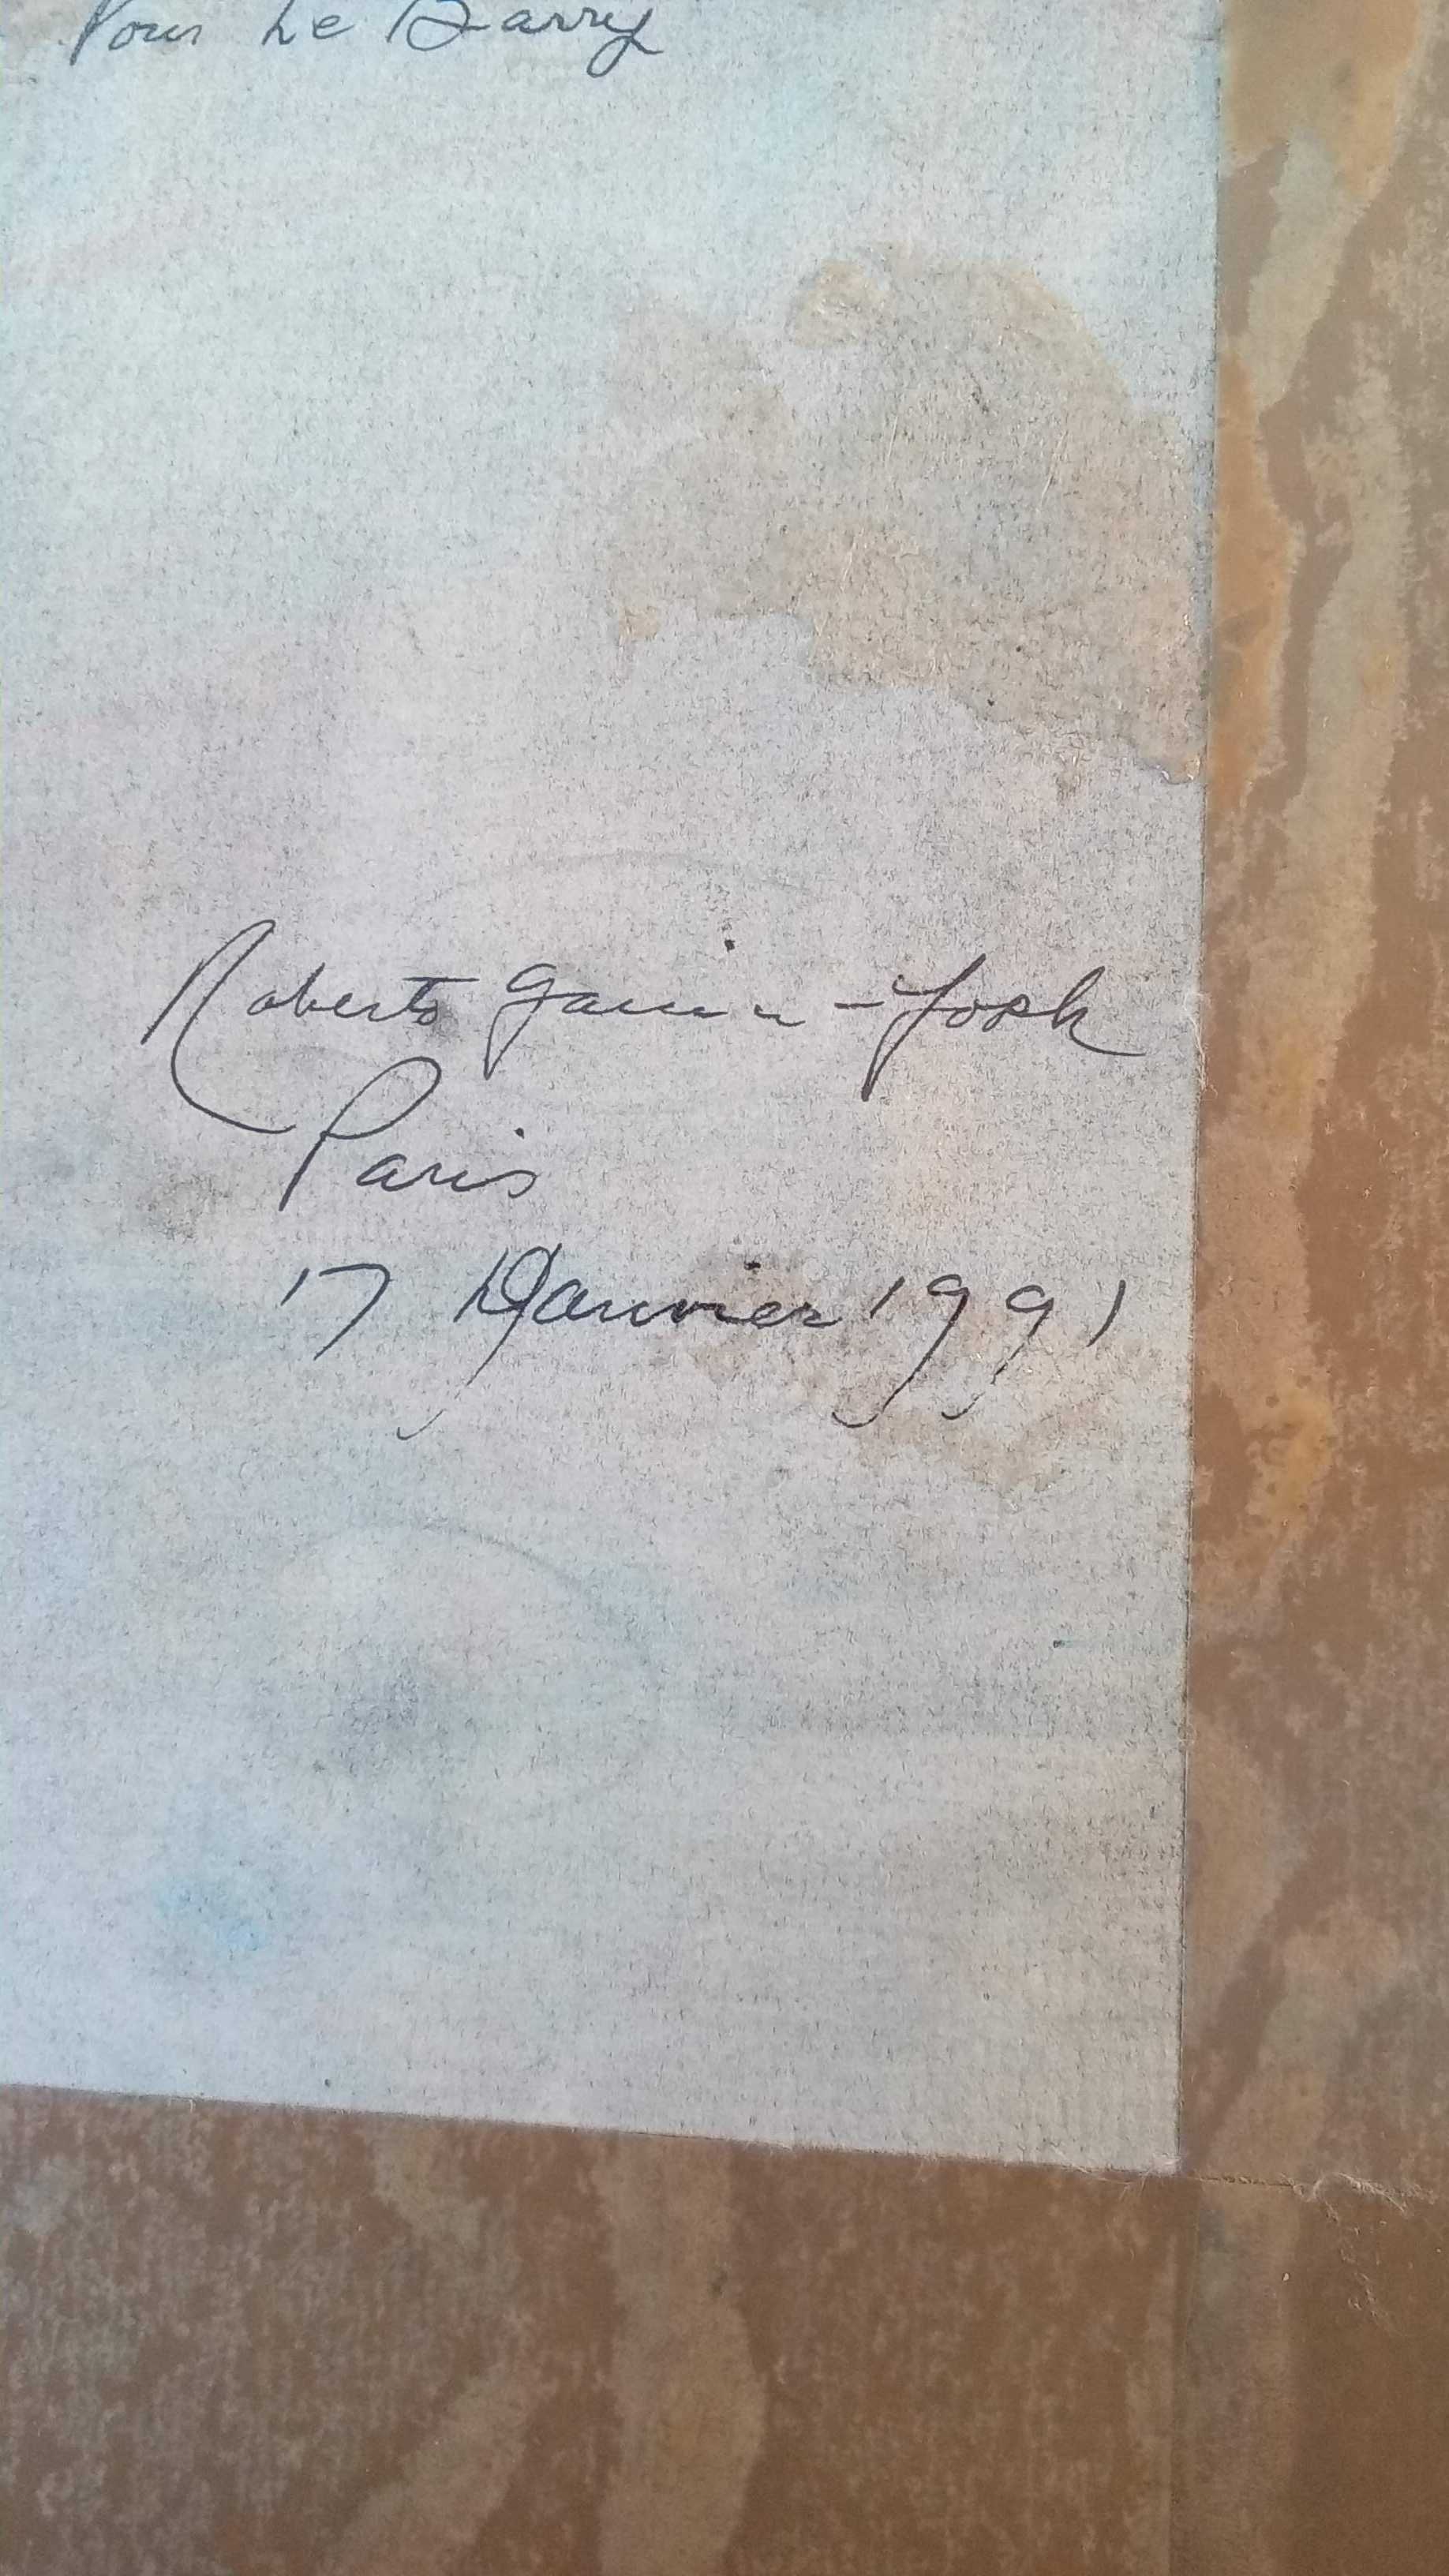 Pour Le Barry
Roberto Garcia-York
Paris
17 Janvier 1991